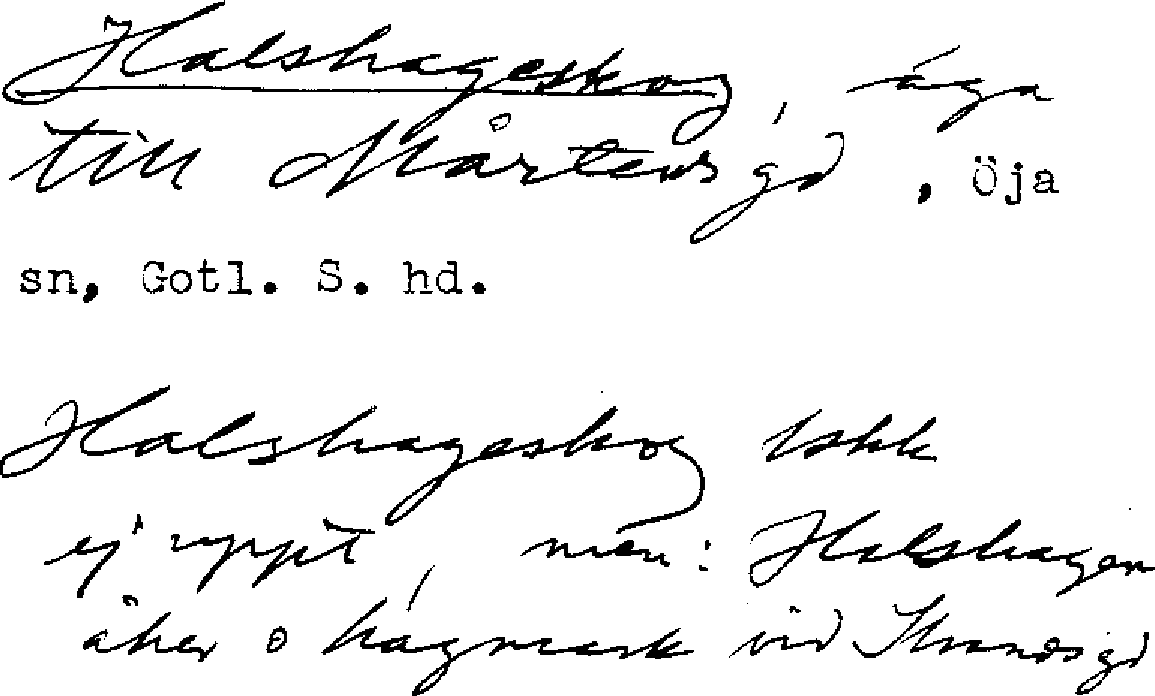 Halshageskog, äga
till Mårtens gd , Öja
sn, Gotl. S. hd.
Halshageskog Iskk
ej uppt, men: Halshagen
åker o hagmark vid Strands gd